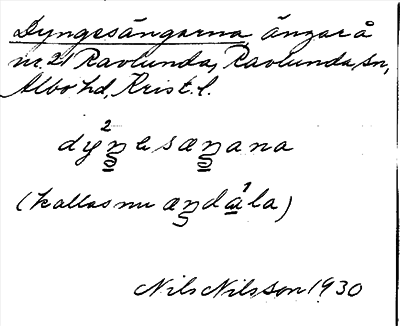 Dyngesängarna ängar å
nr. 21 Ravlunda, Ravlunda sn,
Albo hd, Krist. l.
(kallas nu
Nils Nilsson 1930